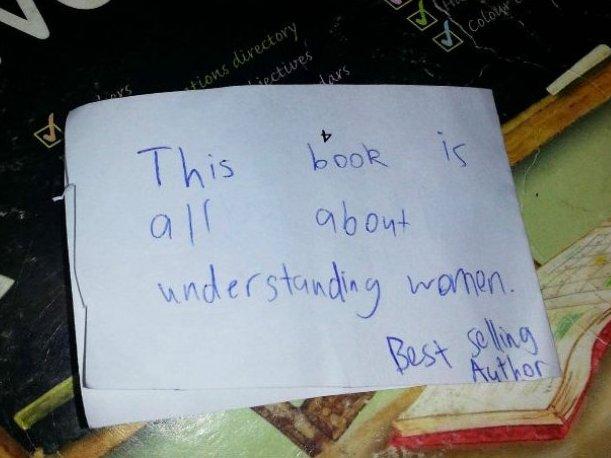 ations directory
jectives
dars
Colour
This book is
all about
understanding women.
Best selling
Author